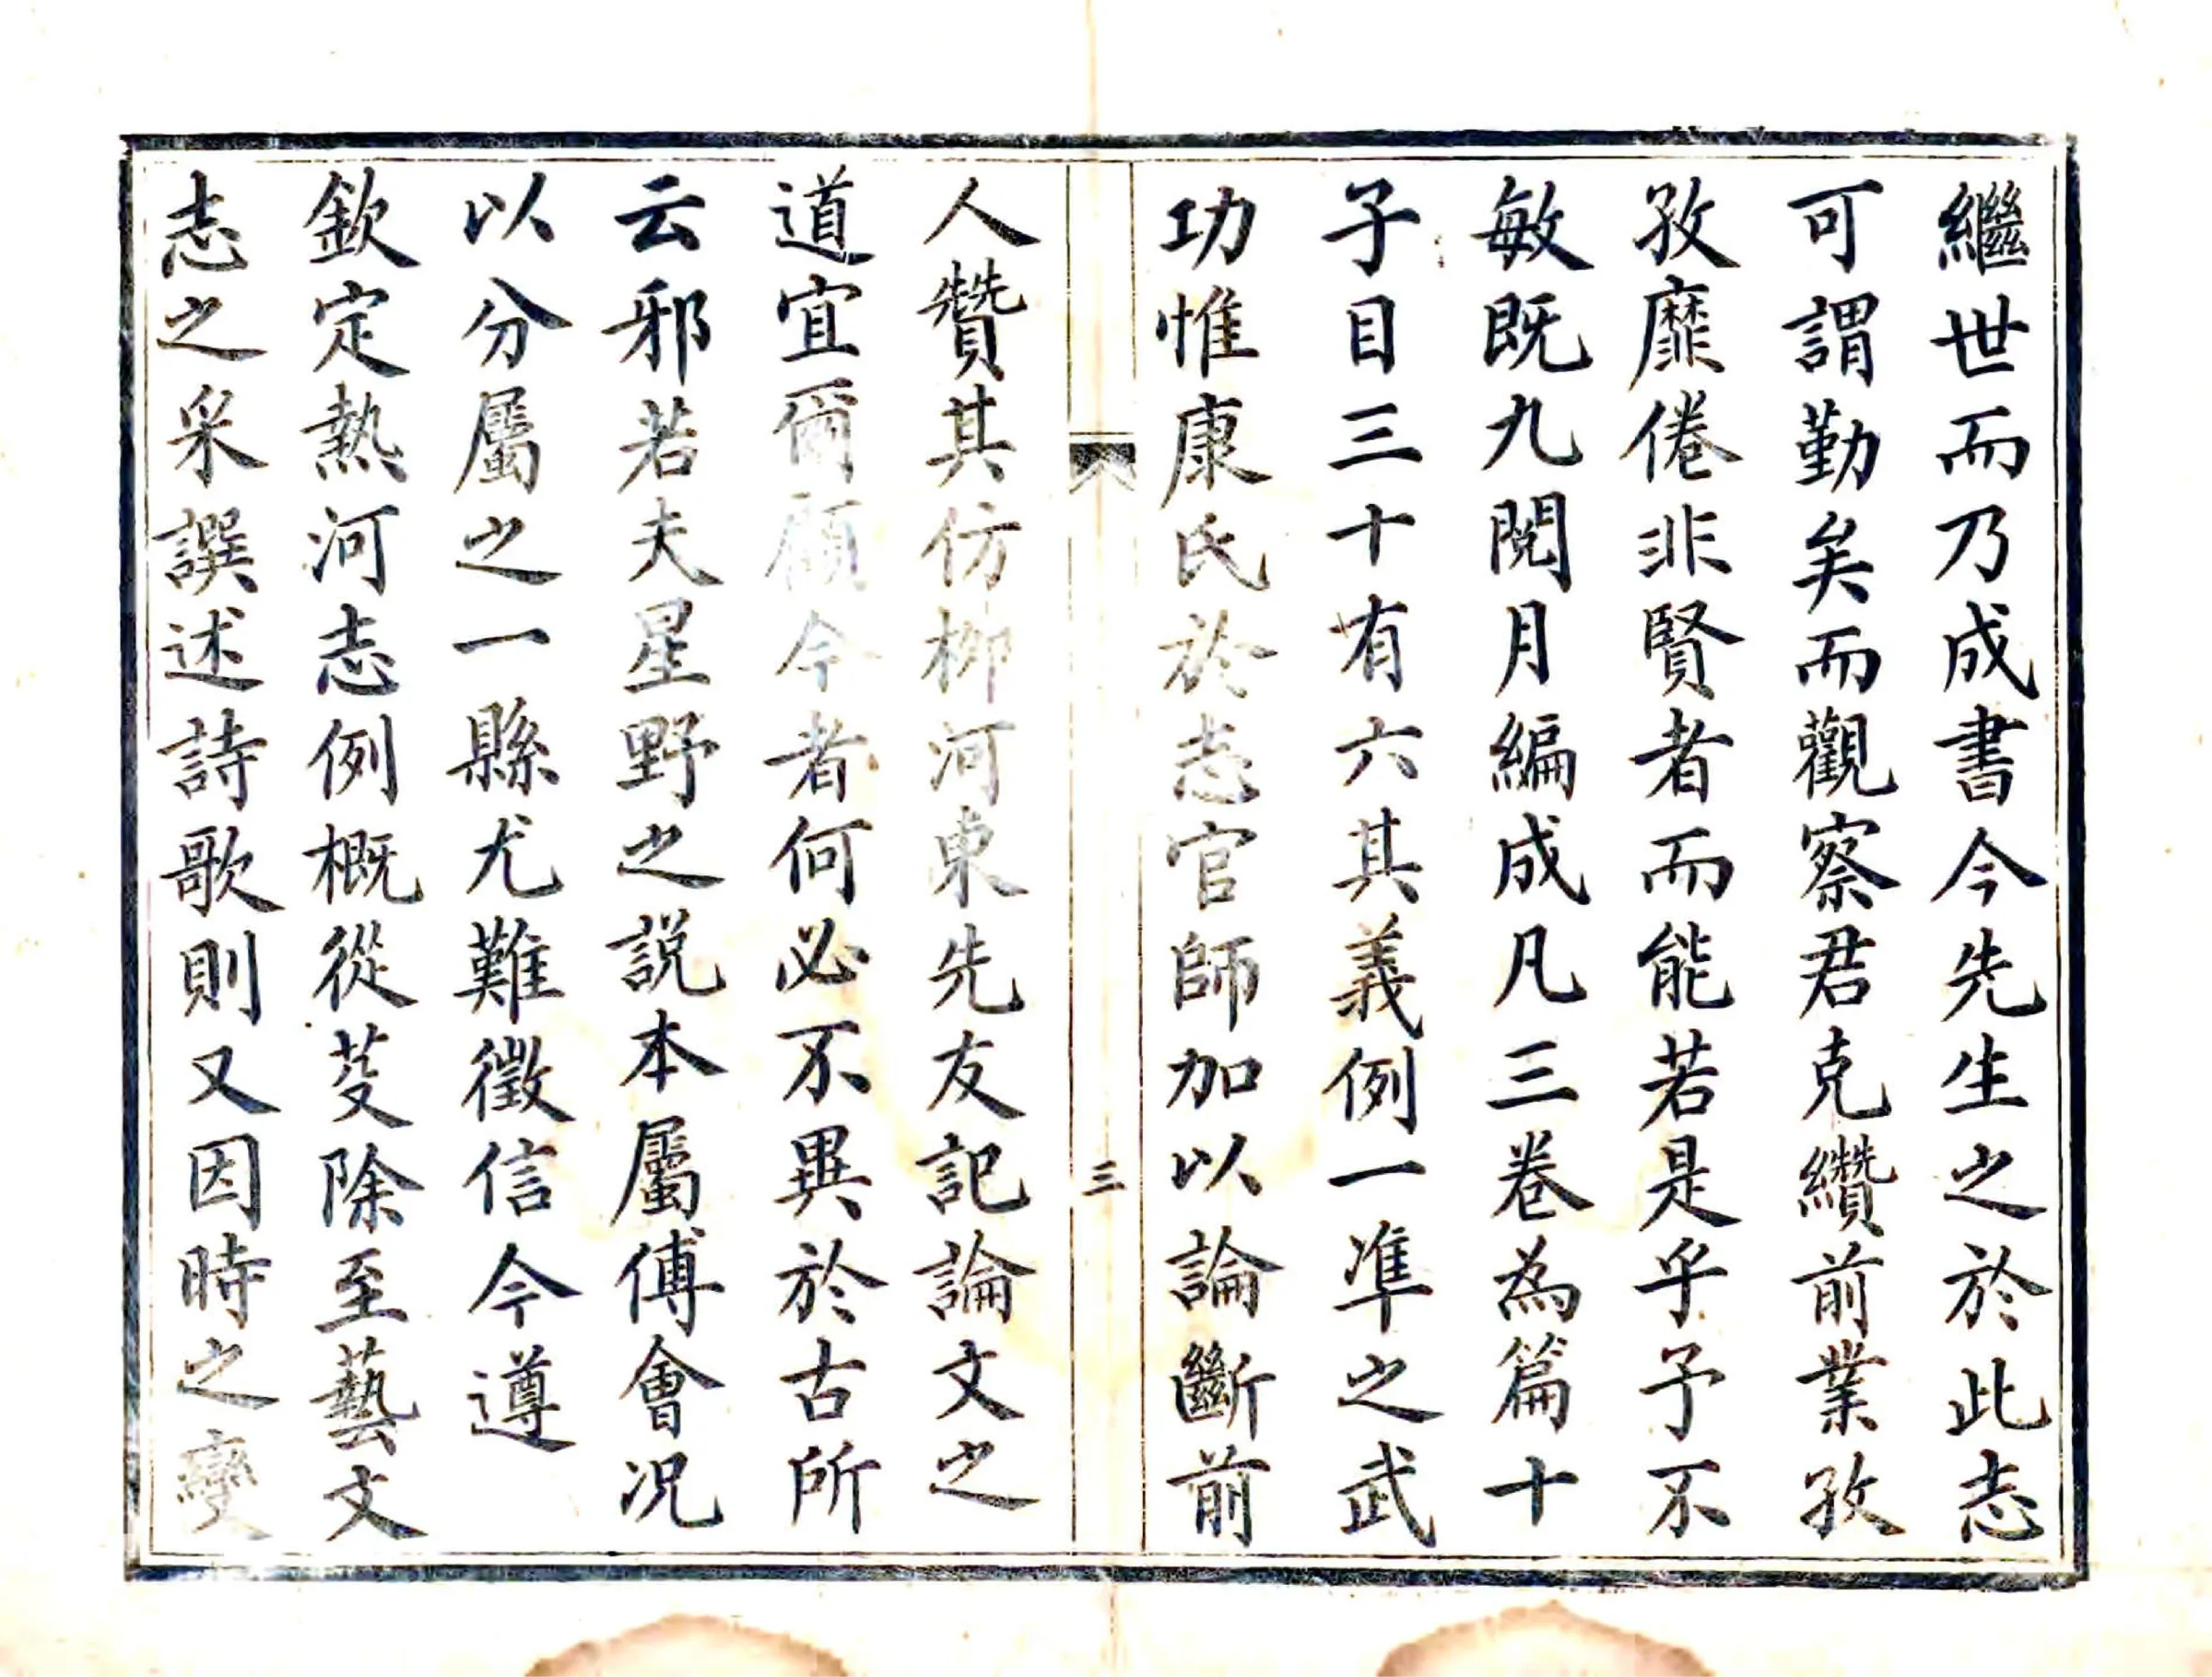 繼世而乃成書今先生之於此志
可謂勤矣而觀察君克纘前業孜
孜靡倦非賢者而能若是乎予不
敏既九閱月編成凡三卷為篇十
子目三十有六其義例一準之武
功惟康氏於志官師加以論斷前
三
人贊其仿柳河東先友記論文之
道宜爾顧今者何必不異於古所
云邪若夫星野之說本屬傅會況
以分屬之一縣尤難徵信今遵
欽定熱河志例概從芟除至藝文
志之采譔述詩歌則又因時之變